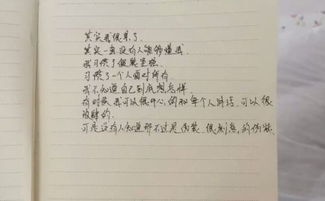 其实我很累了
其实一直没有人能够懂我
我习惯了假装坚强
习惯了一个人面对所有
我不知道自己到底想怎样
有时候我可以很开心的和每个人讲话，可以很
放肆的
可是没有人知道那不过是伪装，很刻意的伪装